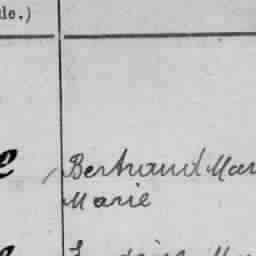 ule.)
e Bertrand Mar
Marie